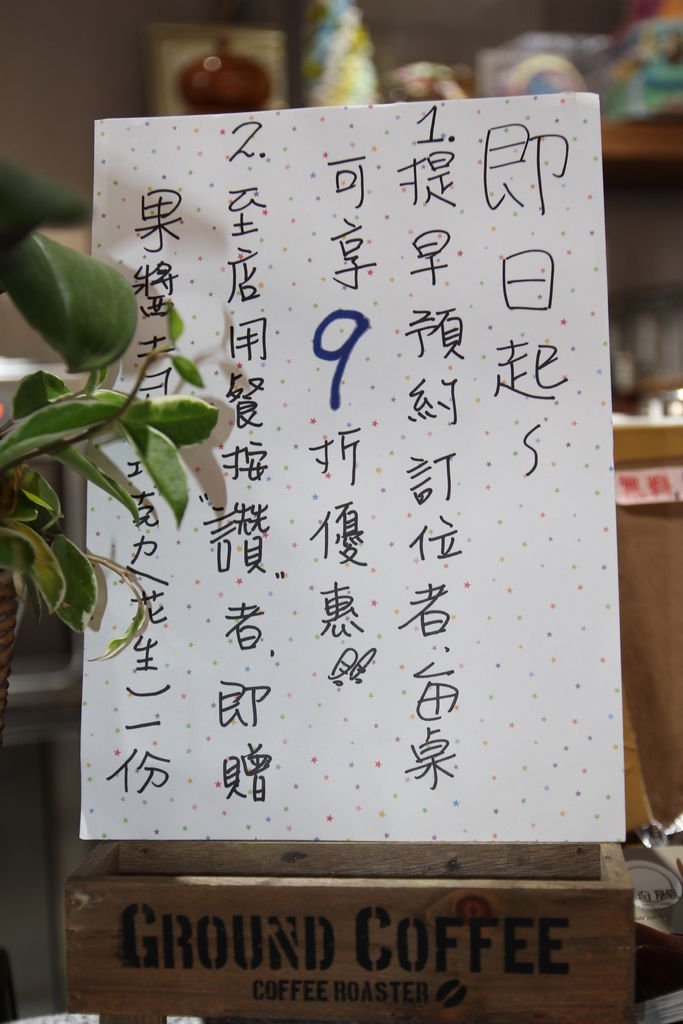 即日起~
1.提早預約訂位者,每桌
可享9折優惠!!
2.至店用餐按"讚"者,即贈
果醬吐 克力/花生)一份
GROUND COFFEE
COFFEE ROASTER